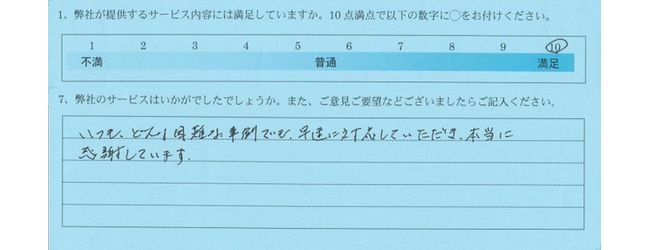 1、弊社が提供するサービス内容には満足していますか。10点満点で以下の数字に○をお付けください。
1 2 3 4 5 6 7 8 9 10
不満 普通 満足
7、弊社のサービスはいかがでしたでしょうか。また、ご意見ご要望などございましたらご記入ください。
いつも、どんな困難な事例でも、早速に対応していただき、本当に
感謝しています。